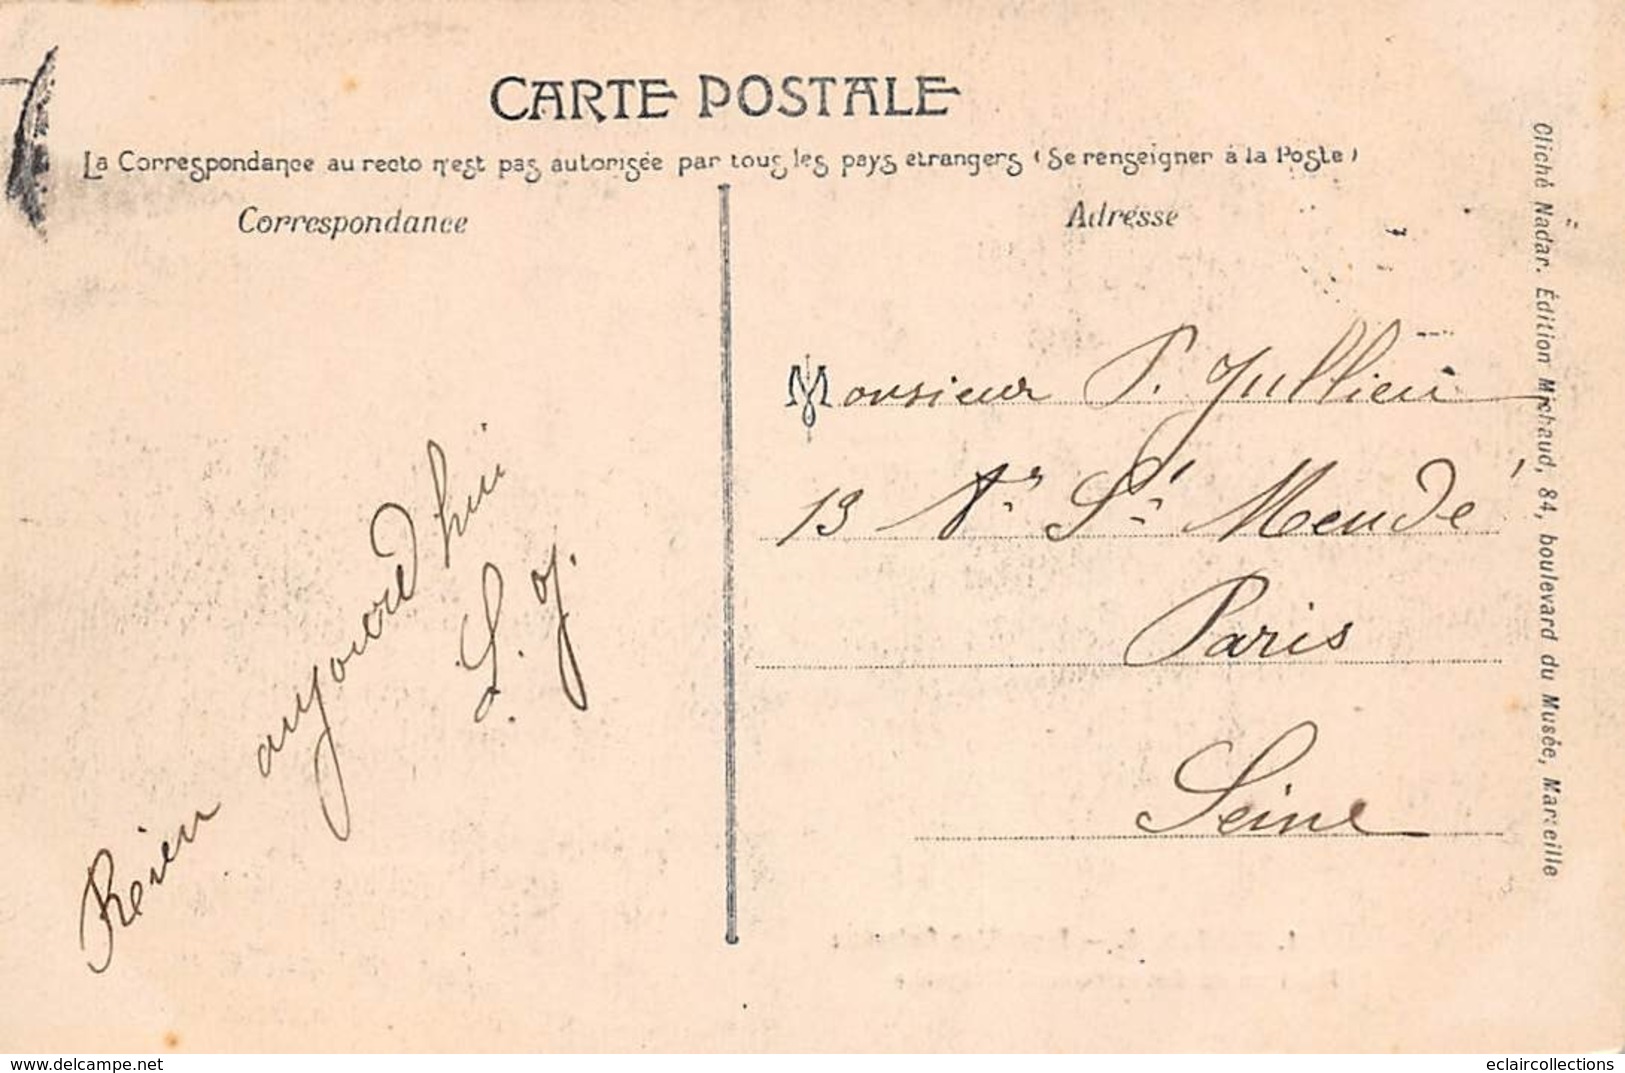 CARTE POSTALE
La Correspondance au recto n'est pas autorisée par tous les pays etrangers (Se renseigner à la Poste)
Correspondance
Adresse
Monsieur P. Jullien
13 Ar St Mandé
Paris
Seine
Reien aujourd hui
L. J.
Cliché Nadar. Édition Michaud, 84, boulevard du Musée, Marseille
www.delcampe.net
eclaircollections